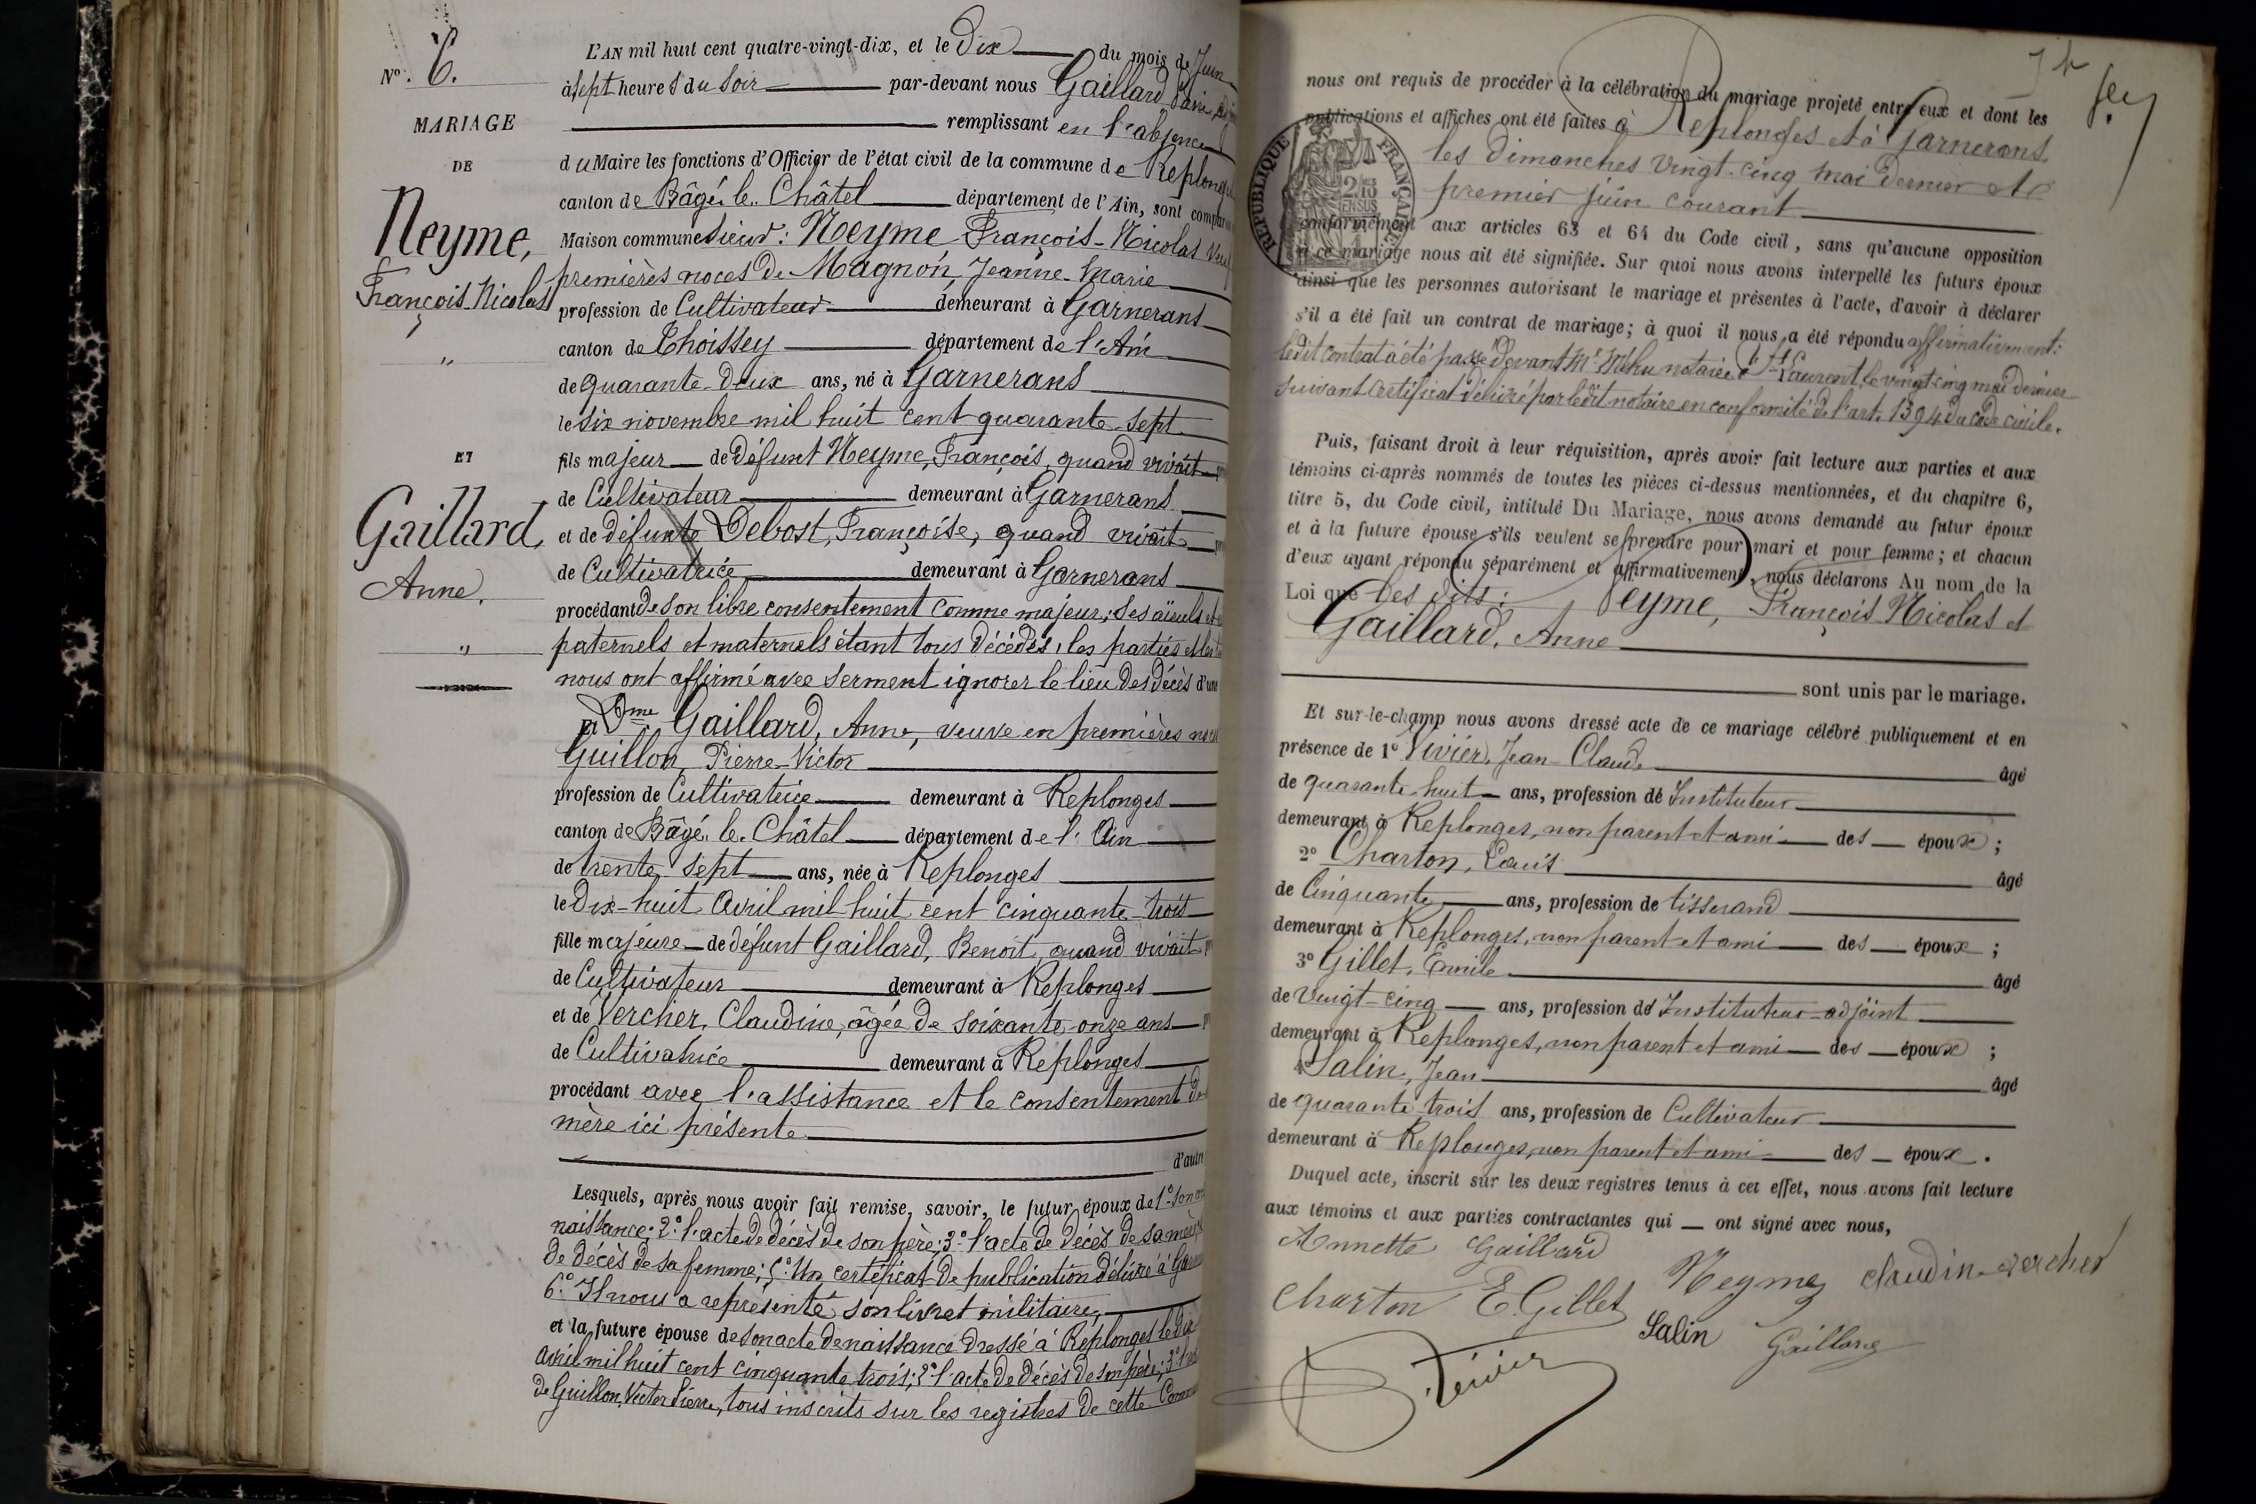 Nº. 6.
MARIAGE
DE
Neyme,
François-Nicolas
"
ET
Gaillard,
Anne.
"
L'AN mil huit cent quatre-vingt-dix, et le Dix du mois de Juin
à sept heures du soir par-devant nous Gaillard
remplissant en l'absence
du Maire les fonctions d'Officier de l'état civil de la commune de Replonges
canton de Bâgé-le-Châtel département de l'Ain, sont
Maison commune sieur: Neyme François-Nicolas
premières noces de Magnon, Jeanne-Marie
profession de Cultivateur demeurant à Garnerans
canton de Thoissey département de l'Ain
de quarante-deux ans, né à Garnerans
le six novembre mil huit cent quarante-sept
fils majeur de défunt Neyme, François, quand vivait
de Cultivateur demeurant à Garnerans
et de défunte Debost, Françoise, quand vivait
de Cultivatrice demeurant à Garnerans
procédant de son libre consentement comme majeur; ses aïeuls et
paternels et maternels étant tous décédés, les parties et les
nous ont affirmé avec serment ignorer le lieu des décès d'une
Et Dme Gaillard, Anne, veuve en premières
Guillon, Pierre-Victor
profession de Cultivatrice demeurant à Replonges
canton de Bâgé-le-Châtel département de l'Ain
de trente-sept ans, née à Replonges
le Dix-huit avril mil huit cent cinquante-trois
fille majeure de défunt Gaillard, Benoit, quand vivait
de Cultivateur demeurant à Replonges
et de Vercher, Claudine, âgée de soixante-onze ans
de Cultivatrice demeurant à Replonges
procédant avec l'assistance et le consentement de
mère ici présente
d'autre
Lesquels, après nous avoir fait remise, savoir, le futur époux de 1° son
naissance; 2° l'acte de décès de son père; 3° l'acte de décès de sa mère
de décès de sa femme; 5° Un certificat de publication délivré à
6° Il nous a représenté son livret militaire,
et la future épouse de son acte de naissance dressé à Replonges le dix
avril mil huit cent cinquante trois; 2° l'acte de décès de son père; 3°
de Guillon, Victor Pierre, tous inscrits sur les registres de cette
nous ont requis de procéder à la célébration du mariage projeté entre eux et dont les
publications et affiches ont été faites à Replonges et à Garnerans
les dimanches vingt-cinq mai dernier et
premier juin courant
RÉPUBLIQUE FRANÇAISE
conformément aux articles 63 et 64 du Code civil, sans qu'aucune opposition
à ce mariage nous ait été signifiée. Sur quoi nous avons interpellé les futurs époux
ainsi que les personnes autorisant le mariage et présentes à l'acte, d'avoir à déclarer
s'il a été fait un contrat de mariage; à quoi il nous a été répondu affirmativement:
ledit contrat a été passé devant Me Méhu notaire à St Laurent, le vingt-cinq mai dernier
suivant certificat délivré par ledit notaire en conformité de l'art. 1394 du code civile.
Puis, faisant droit à leur réquisition, après avoir fait lecture aux parties et aux
témoins ci-après nommés de toutes les pièces ci-dessus mentionnées, et du chapitre 6,
titre 5, du Code civil, intitulé Du Mariage, nous avons demandé au futur époux
et à la future épouse s'ils veulent se prendre pour mari et pour femme; et chacun
d'eux ayant répondu séparément et affirmativement, nous déclarons Au nom de la
Loi que les dits: Neyme, François-Nicolas et
Gaillard, Anne
sont unis par le mariage.
Et sur-le-champ nous avons dressé acte de ce mariage célébré publiquement et en
présence de 1° Vivier, Jean-Claude âgé
de quarante-huit ans, profession de Instituteur
demeurant à Replonges, non parent et ami des époux;
2° Charton, Louis âgé
de Cinquante ans, profession de tisserand
demeurant à Replonges, non parent et ami des époux;
3° Gillet, Emile âgé
de vingt-cinq ans, profession de Instituteur-adjoint
demeurant à Replonges, non parent et ami des époux;
4° Salin, Jean âgé
de quarante trois ans, profession de Cultivateur
demeurant à Replonges, non parent et ami des époux.
Duquel acte, inscrit sur les deux registres tenus à cet effet, nous avons fait lecture
aux témoins et aux parties contractantes qui ont signé avec nous,
Annette Gaillard Neyme claudine vercher
Charton E. Gillet Salin Gaillard